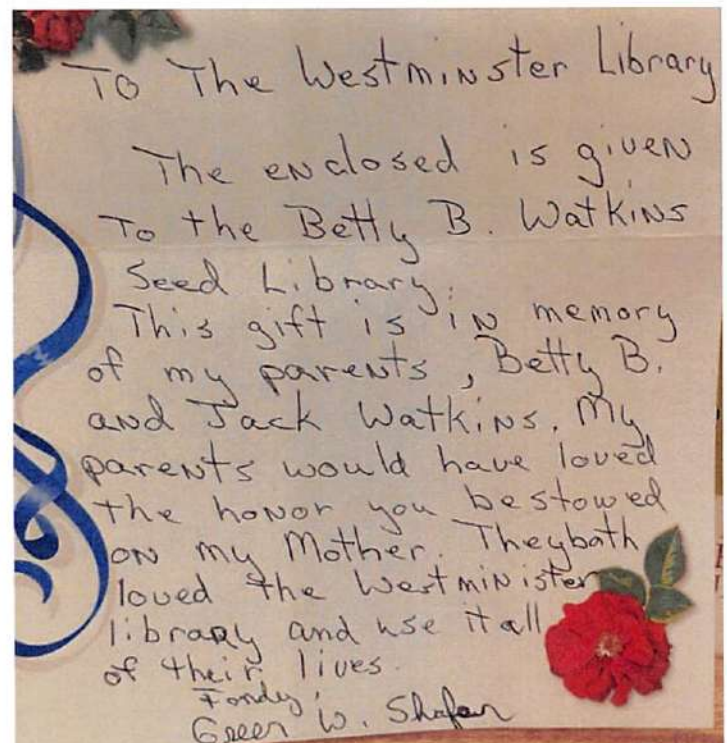 To The Westminster Library
The enclosed is given
To the Betty B. Watkins
Seed Library.
This gift is in memory
of my parents, Betty B.
and Jack Watkins. My
parents would have loved
the honor you bestowed
on my Mother. They both
loved the Westminister
library and use it all
of their lives.
Fondly,
W.